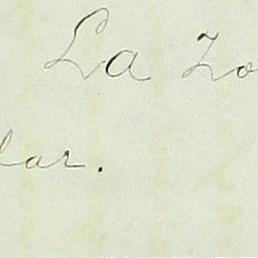 La Zo
lar.